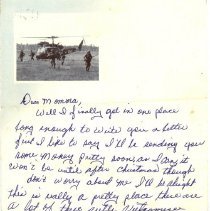 Dear Momma,
Well I finally got in one place
long enough to write you a letter
first I like to say I'll be sending you
some money pretty soon as I can it
won't be until after christmas though
don't worry about me I'll be alright
this is really a pretty place there are
a lot of these little Vietnamese